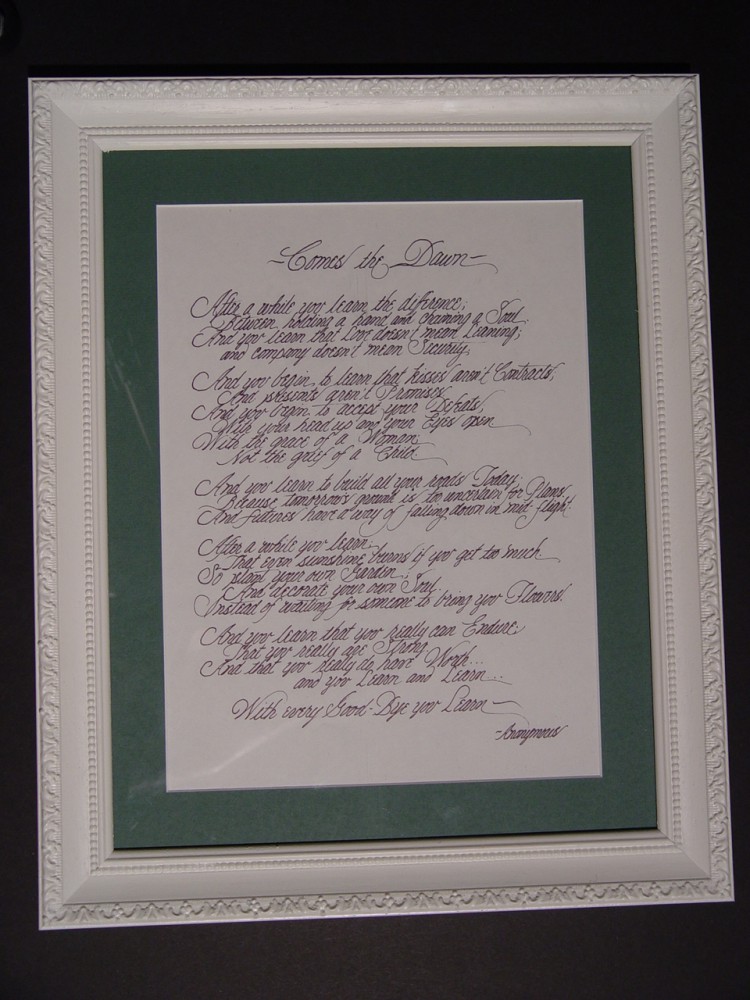 ~Comes the Dawn~
After a while you learn the difference,
Between holding a hand and chaining a Soul
And you learn that Love doesn't mean Leaning;
and company doesn't mean Security,
And you begin to learn that kisses aren't Contracts,
And presents aren't Promises
And you begin to accept your Defeats,
With your head up and your Eyes open
With the grace of a Woman,
Not the grief of a Child
And you learn to build all your roads Today;
Because tomorrow's ground is too uncertain for Plans
And futures have a way of falling down in mid-flight.
After a while you learn
That even sunshine burns if you get too much
So plant your own Garden
And decorate your own Soul
Instead of waiting for someone to bring you Flowers.
And you learn that you really can Endure;
That you really are Strong
And that you really do have Worth...
and you Learn and Learn...
With every Good-Bye you Learn~
-Anonymous